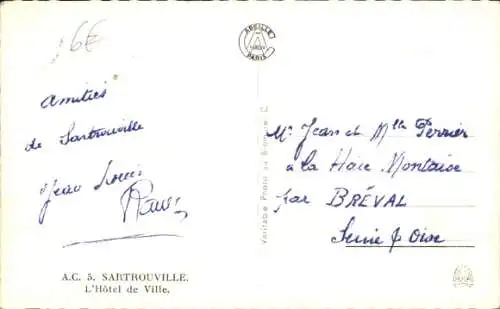 16€
Amitiés
de Sartrouville
Jean Louis
A.C. 5. SARTROUVILLE.
L'Hôtel de Ville.
ABEILLE
PARIS
Véritable Photo au Bromure
Mr Jean et Mlle Perrier
à la Haie Montaise
par BRÉVAL
Seine & Oise